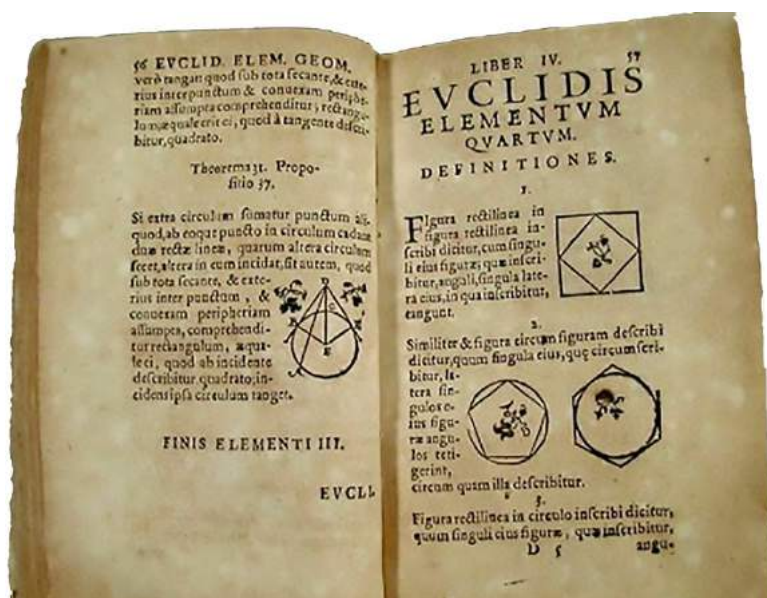 56 EVCLID. ELEM. GEOM.
verò tangat quod sub tota secante, & exte-
rius inter punctum & conuexam periphe-
riam assumpta comprehenditur, rectangu-
lum, æquale erit ei, quod à tangente descri-
bitur, quadrato.
Theorema 31. Propo-
sitio 37.
Si extra circulum sumatur punctum ali-
quod, ab eoque puncto in circulum cadant
duæ rectæ lineæ, quarum altera circulum
secet, altera in eum incidat, sit autem, quod
sub tota secante, & exte-
rius inter punctum, &
conuexam peripheriam
assumpta, comprehendi-
tur rectangulum, æqua-
le ei, quod ab incidente
describitur quadrato; in-
cidens ipsa circulum tanget.
D
C
B
E
A
FINIS ELEMENTI III.
EVCLI
LIBER IV. 57
EVCLIDIS
ELEMENTVM
QVARTVM.
DEFINITIONES.
1.
FIgura rectilinea in
figura rectilinea in-
scribi dicitur, cum singu-
li eius figuræ, quæ inscri-
bitur, anguli, singula late-
ra eius, in qua inscribitur,
tangunt.
2.
Similiter & figura circum figuram describi
dicitur, quum singula eius, quę circumscri-
bitur, la-
tera sin-
gulos e-
ius figu-
ræ angu-
los teti-
gerint,
circum quam illa describitur.
3.
Figura rectilinea in circulo inscribi dicitur,
quum singuli eius figuræ, quæ inscribitur,
D 5 angu-